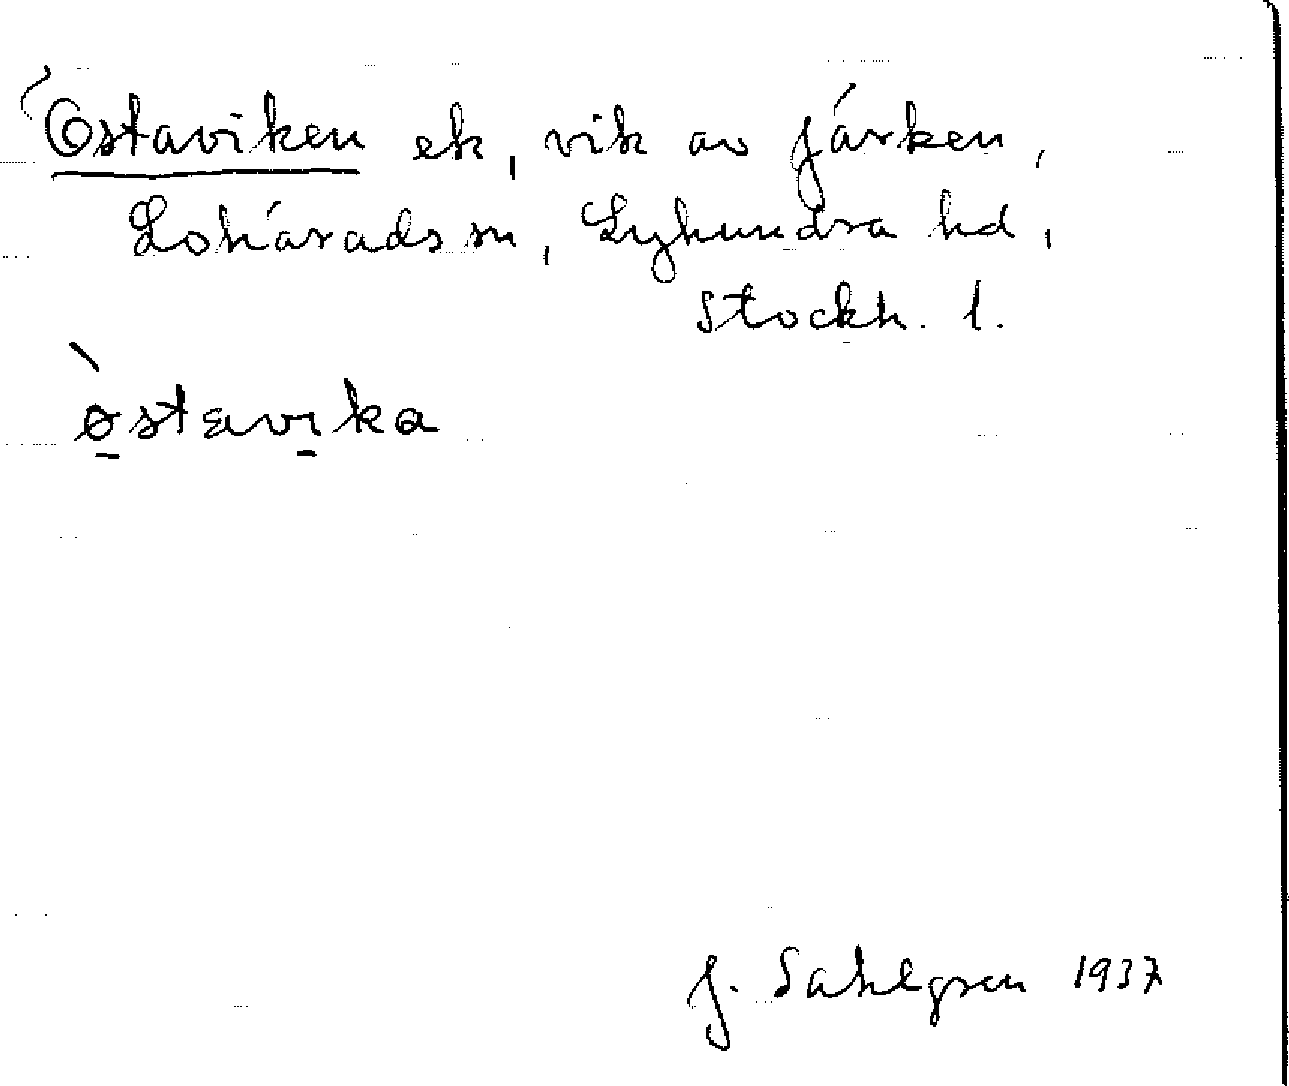 Östaviken ek, vik av Järken,
Lohärads sn, Lyhundra hd,
Stockh. l.
ø̀stavika
J. Sahlgren 1937